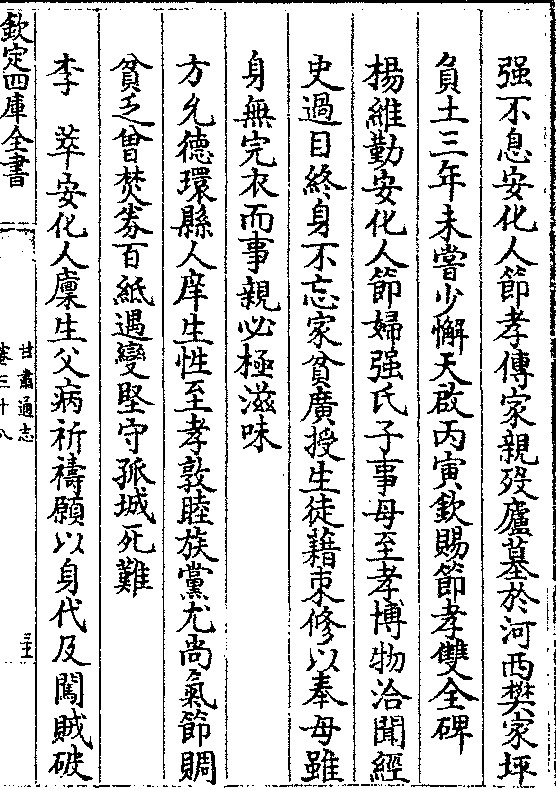 强不息安化人節孝傳家親歿廬墓於河西樊家坪
負土三年未嘗少懈天啟丙寅欽賜節孝雙全碑
楊維勤安化人節婦强氏子事母至孝博物洽聞經
史過目終身不忘家貧廣授生徒藉束修以奉母雖
身無完衣而事親必極滋味
方允德環縣人庠生性至孝敦睦族黨尤尚氣節賙
貧乏曾焚券百紙遇變堅守孤城死難
李 萃安化人廪生父病祈禱願以身代及闖賊破
欽定四庫全書
甘肅通志
卷三十八